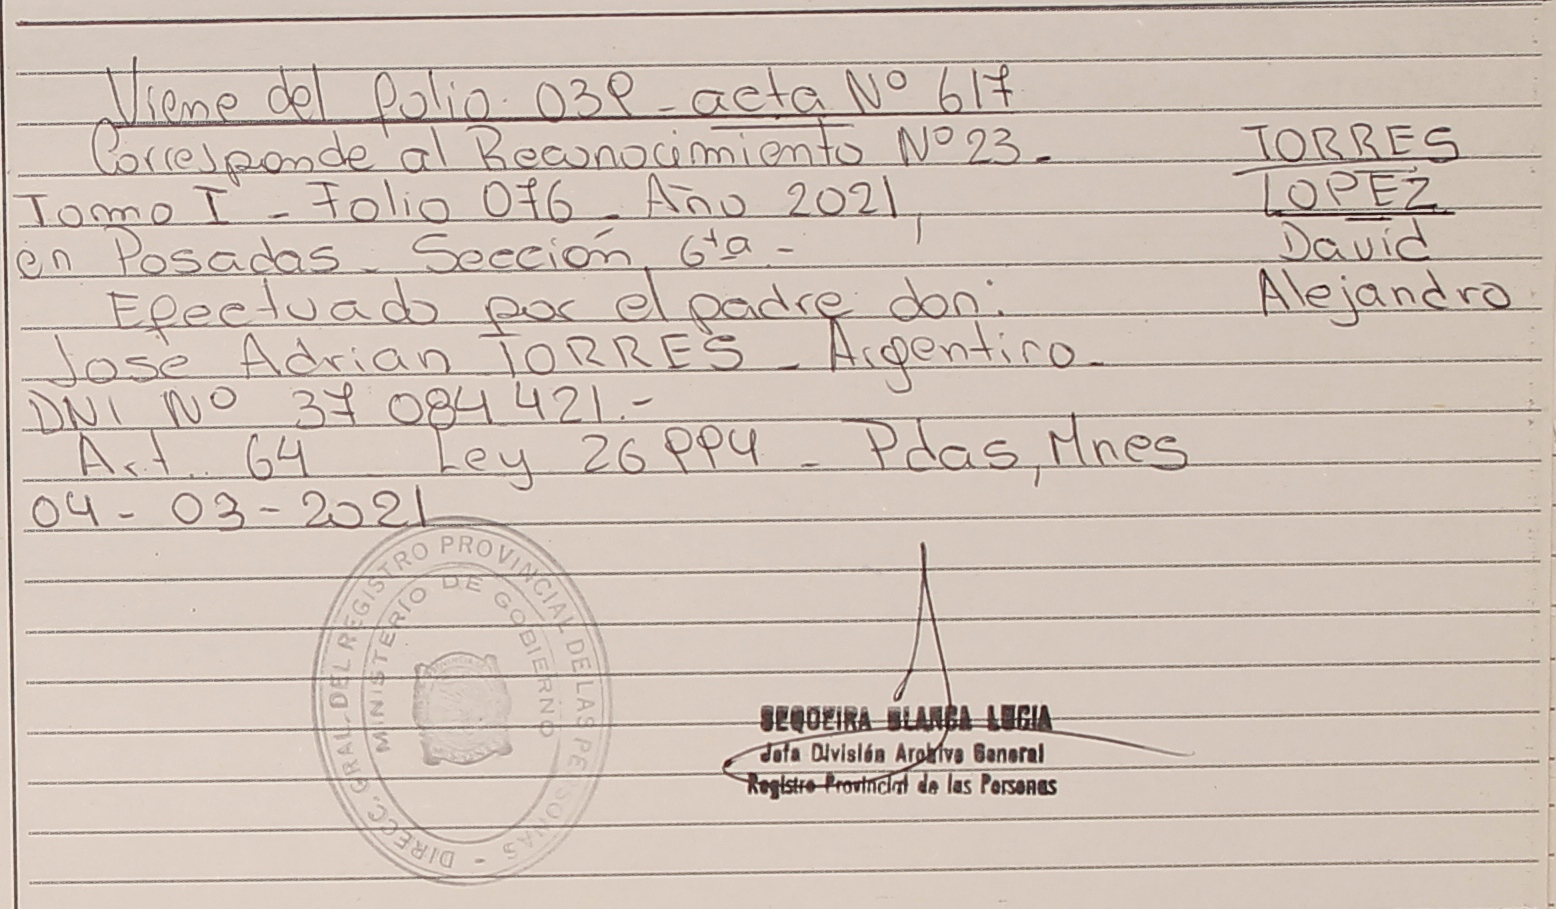 Viene del folio 039 - acta Nº 617
Corresponde al Reconocimiento Nº 23.-
Tomo I - Folio 076 - Año 2021,
en Posadas - Sección 6ta -
Efectuado por el padre don:
José Adrian TORRES - Argentino -
DNI Nº 37 084 421.-
Art. 64 Ley 26 994 - Pdas, Mnes
04 - 03 - 2021
TORRES
LOPEZ
David
Alejandro
DIRECC. GRAL. DEL REGISTRO PROVINCIAL DE LAS PERSONAS -
MINISTERIO DE GOBIERNO
SEQUEIRA BLANCA LUCIA
Jefa División Archivo General
Registro Provincial de las Personas